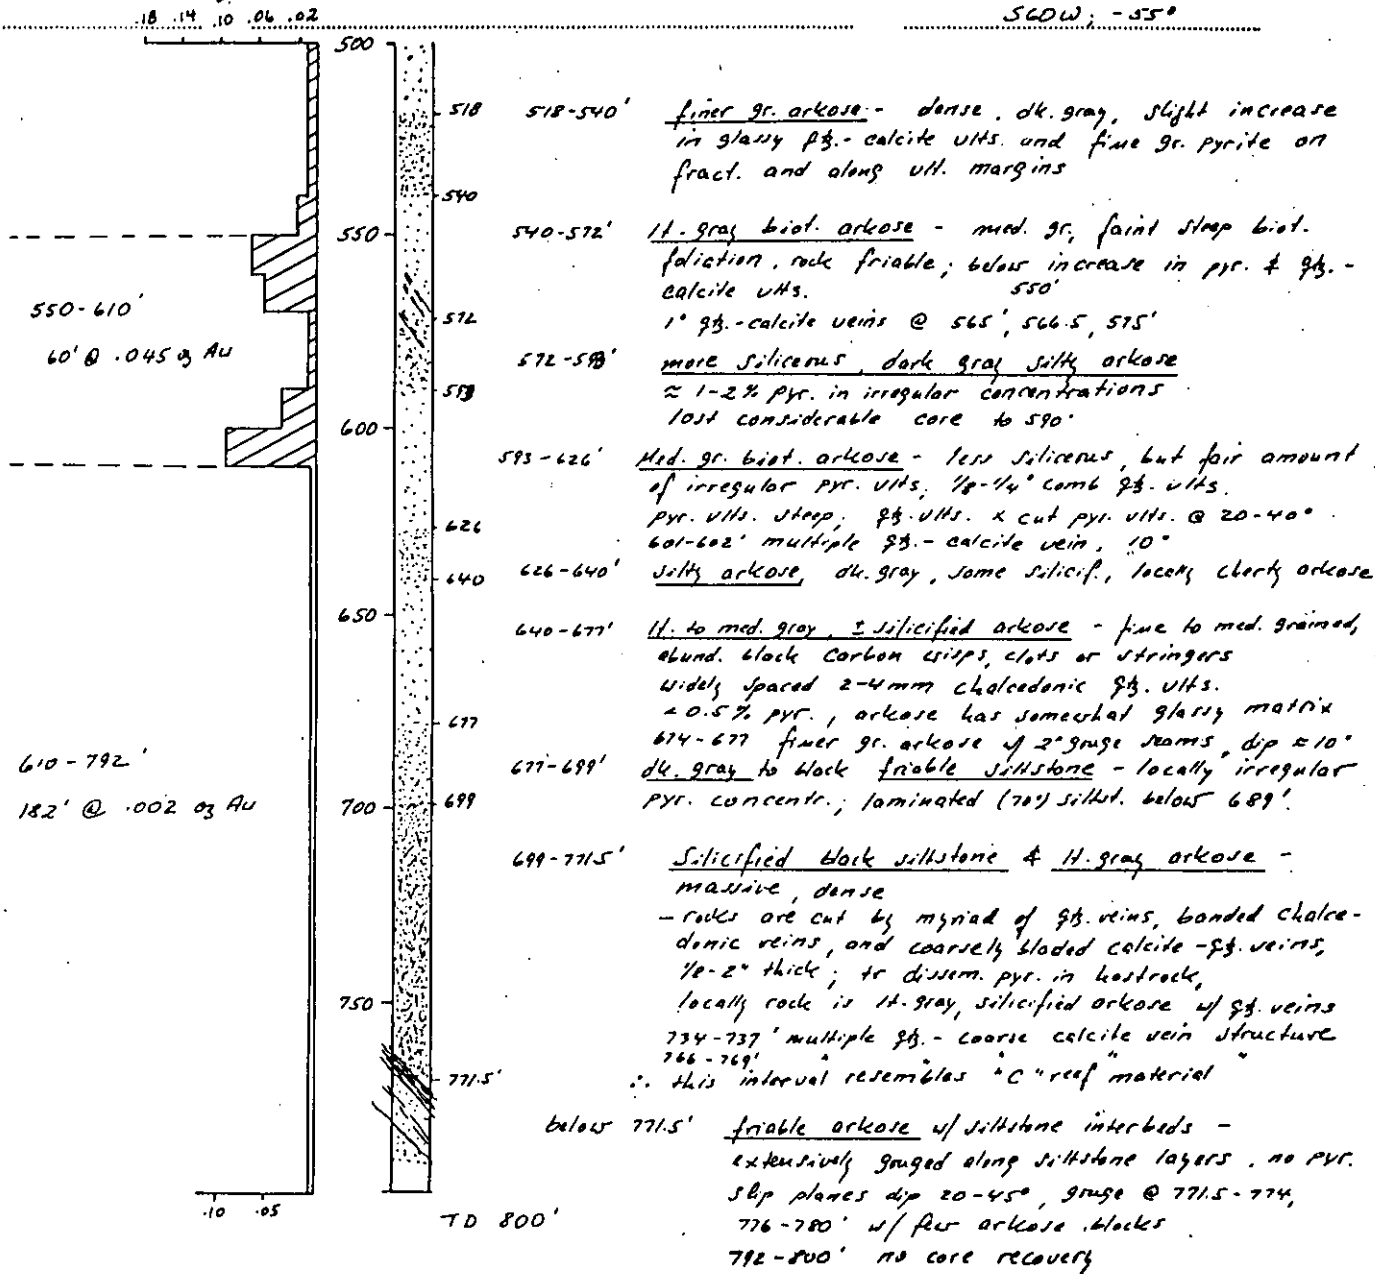 .18 .14 .10 .06 .02
S60W; -55°
500
518
518-540' finer gr. arkose - dense, dk. gray, slight increase
in glassy qtz.-calcite vlts. and fine gr. pyrite on
fract. and along vlt. margins
540
550
540-572' lt. gray biot. arkose - med. gr., faint steep biot.
foliation, rock friable; below increase in pyr. & qtz.-
calcite vlts. 550'
1" qtz.-calcite veins @ 565', 566.5, 575'
550-610'
60' @ .045 oz Au
572
572-593' more silicerus, dark gray silty arkose
≈ 1-2% pyr. in irregular concentrations
lost considerable core to 590'
593
600
593-626' Med. gr. biot. arkose - less silicerus, but fair amount
of irregular pyr. vlts, 1/8-1/4" comb qtz. vlts.
pyr. vlts. steep; qtz. vlts. x cut pyr. vlts. @ 20-40°
601-602' multiple qtz.-calcite vein, 10°
626
640
626-640' silty arkose, dk. gray, some silicif., locally cherty arkose
650
640-677' lt. to med. gray, ± silicified arkose - fine to med. grained,
abund. black carbon wisps, clots or stringers
widely spaced 2-4mm chalcedonic qtz. vlts.
<0.5% pyr., arkose has somewhat glassy matrix
674-677 finer gr. arkose w/ 2" gouge seams, dip ≈10°
677
610-792'
182' @ .002 oz Au
677-699' dk. gray to black friable siltstone - locally irregular
pyr. concentr.; laminated (70°) siltst. below 689'.
700
699
699-771.5' Silicified black siltstone & lt. gray arkose -
massive, dense
- rocks are cut by myriad of qtz. veins, banded chalce-
donic veins, and coarsely bladed calcite-qtz. veins,
1/8-2" thick; tr dissem. pyr. in hostrock,
locally rock is lt. gray, silicified arkose w/ qtz. veins
750
734-737' multiple qtz.-coarse calcite vein structure
766-769' " " "
771.5'
∴ this interval resembles "C" reef material
below 771.5' friable arkose w/ siltstone interbeds -
extensively gouged along siltstone layers, no pyr.
slip planes dip 20-45°, gouge @ 771.5-774,
776-780' w/ few arkose blocks
792-800' no core recovery
.10 .05
TD 800'